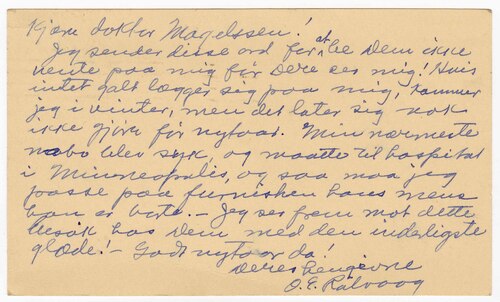 Kjære doktor Magelssen!
Jeg sender disse ord for at be Dem ikke
vente paa mig før Dere ser mig! Hvis
intet galt lægger sig paa mig, kommer
jeg i vinter, men det later sig nok
ikke gjøre før nytaar. Min nærmeste
nabo blev syk, og maatte til hospital
i Minneapolis, og saa maa jeg
passe paa furnisken hans mens
han er borte. – Jeg ser frem mot dette
besøk hos Dem med den inderligste
glæde! – Godt nytaar da!
Deres hengivne
O. E. Rølvaag